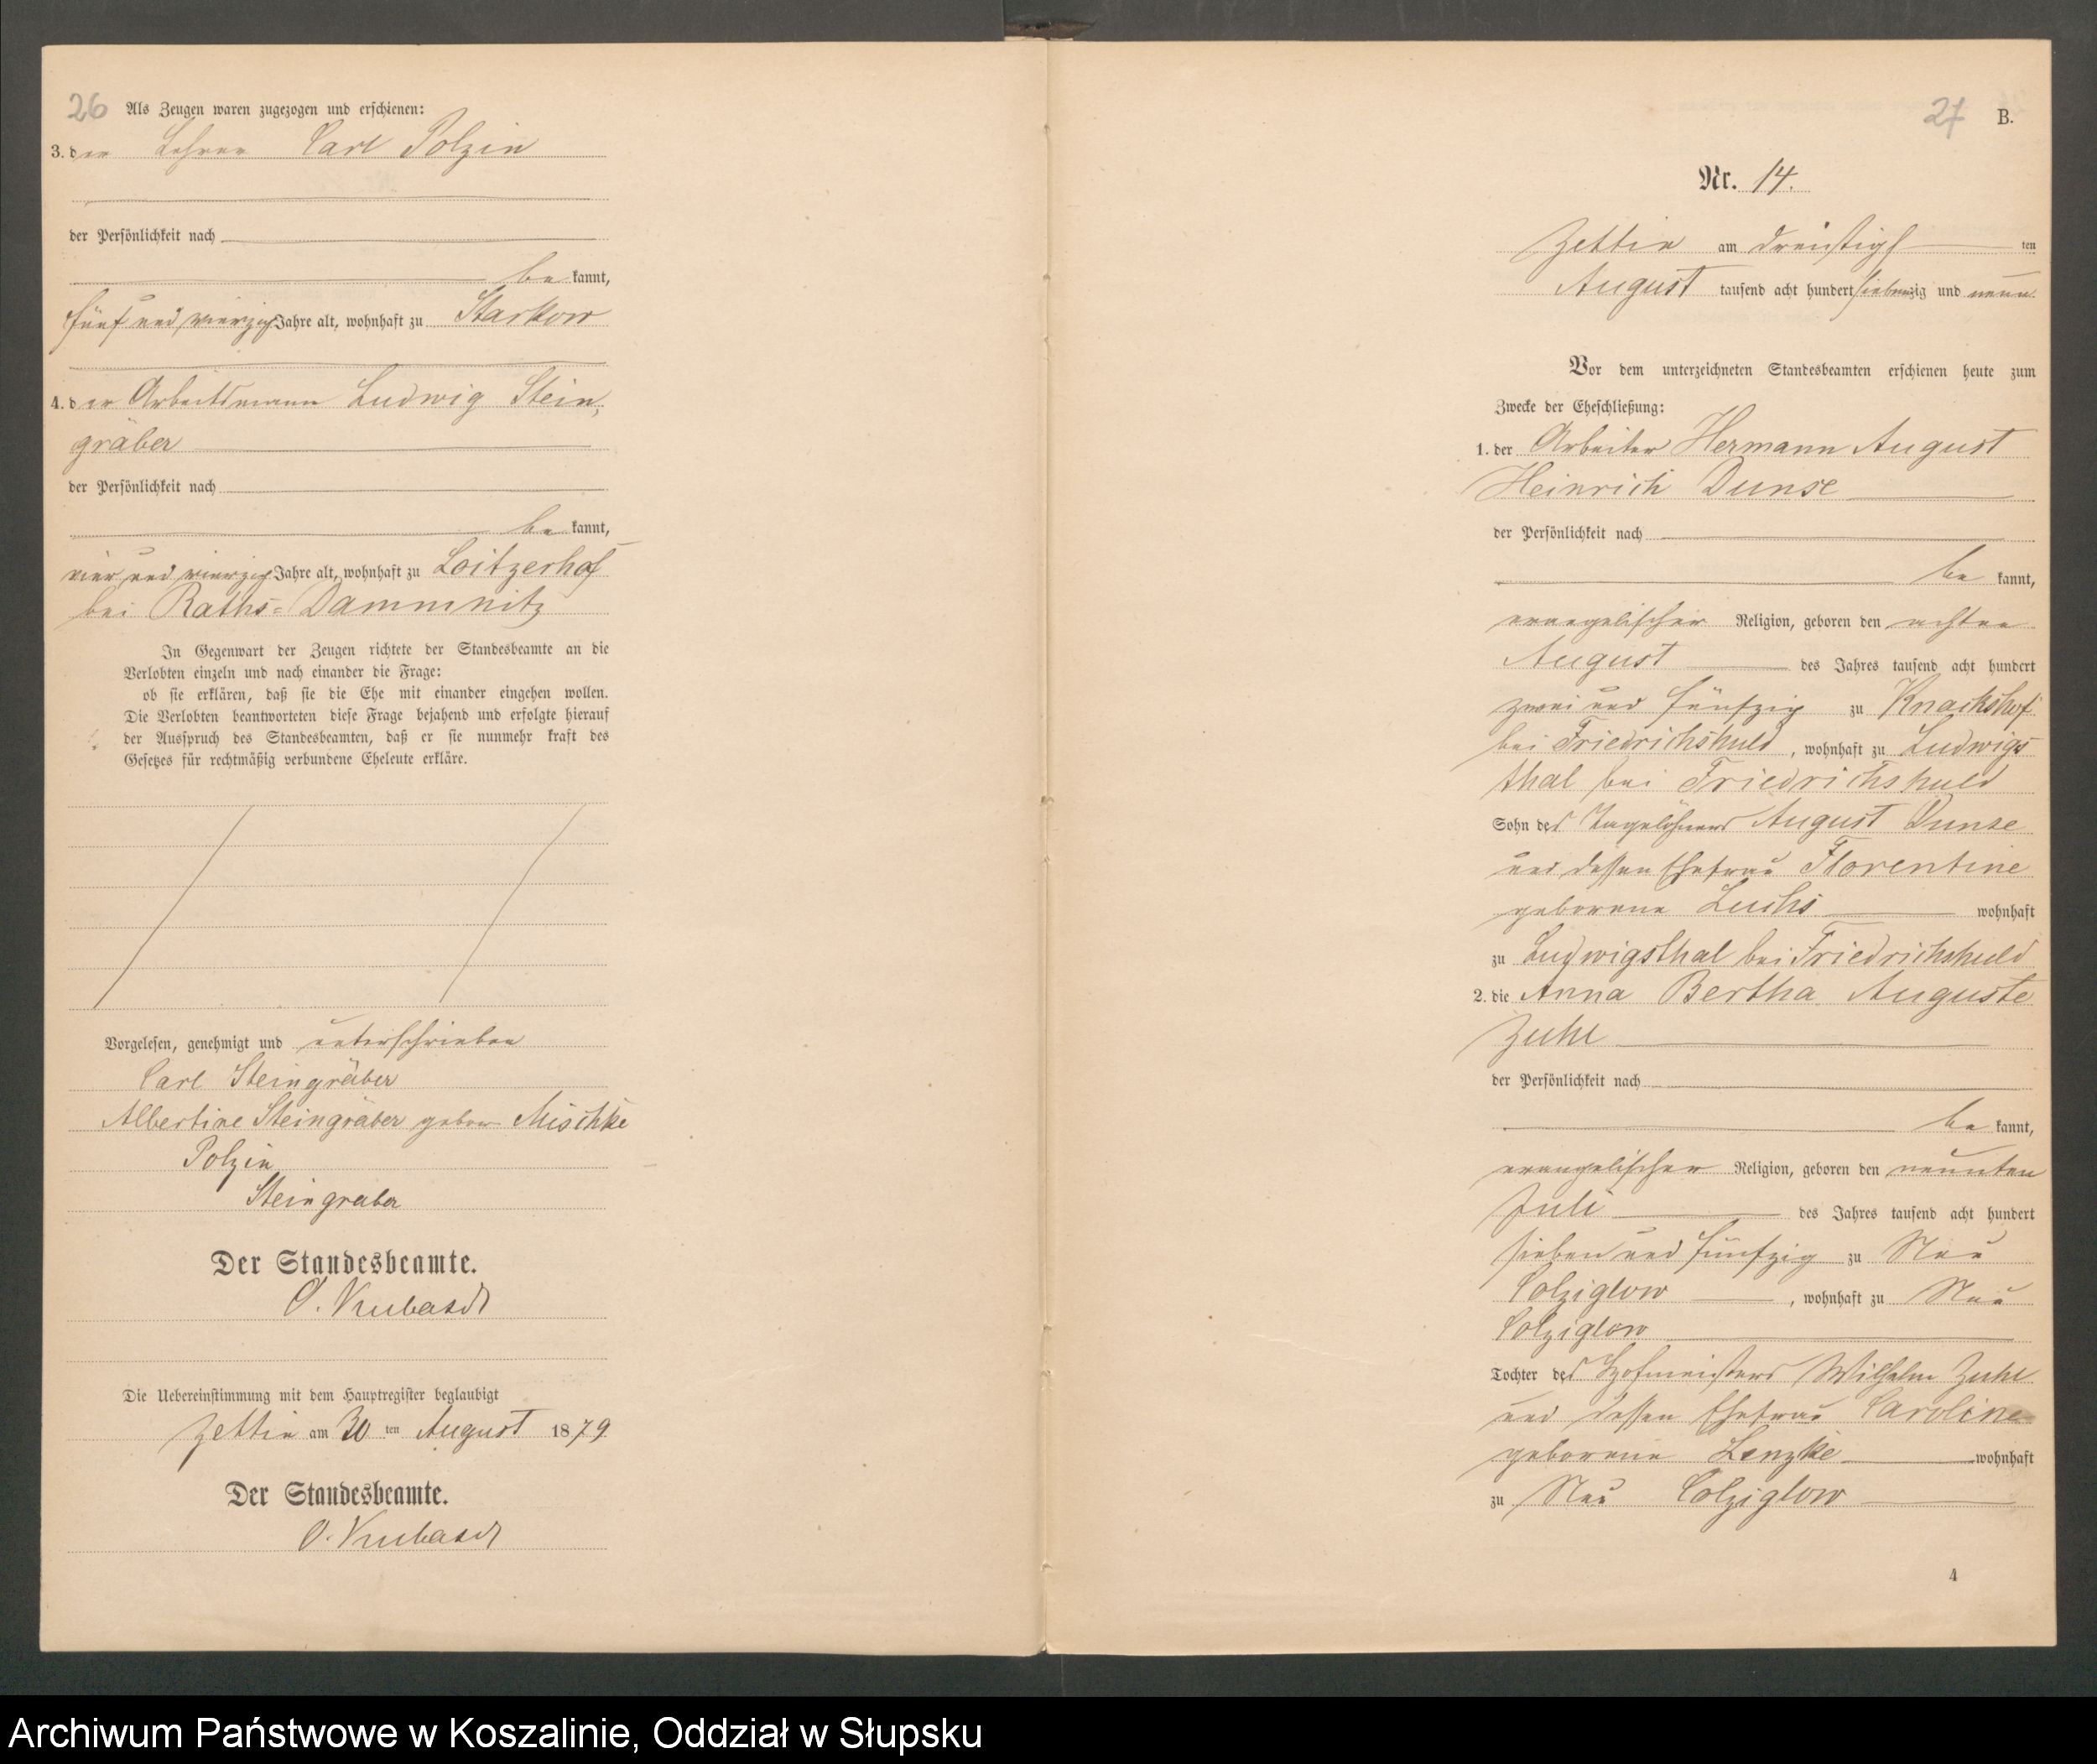 26 Als Zeugen waren zugezogen und erschienen:
3. der Lehrer Carl Polzin
der Persönlichkeit nach
be kannt,
fünf und vierzig Jahre alt, wohnhaft zu Starkow
4. der Arbeitsmann Ludwig Stein,
gräber
der Persönlichkeit nach
be kannt,
vier und vierzig Jahre alt, wohnhaft zu Loitzerhof
bei Raths=Dammnitz
In Gegenwart der Zeugen richtete der Standesbeamte an die
Verlobten einzeln und nach einander die Frage:
ob sie erklären, daß sie die Ehe mit einander eingehen wollen.
Die Verlobten beantworteten diese Frage bejahend und erfolgte hierauf
der Ausspruch des Standesbeamten, daß er sie nunmehr kraft des
Gesetzes für rechtmäßig verbundene Eheleute erkläre.
Vorgelesen, genehmigt und unterschrieben
Carl Steingräber
Albertine Steingräber gebor Mischke
Polzin
Steingraber
Der Standesbeamte.
O.
Die Uebereinstimmung mit dem Hauptregister beglaubigt
Zettin am 30 ten August 1879
Der Standesbeamte.
O.
27 B.
Nr. 14.
Zettin am dreißigs ten
August tausend acht hundert siebenzig und neun
Vor dem unterzeichneten Standesbeamten erschienen heute zum
Zwecke der Eheschließung:
1. der Arbeiter Hermann August
Heinrich Dunse
der Persönlichkeit nach
be kannt,
evangelischer Religion, geboren den achten
August des Jahres tausend acht hundert
zwei und fünfzig zu Knackshof
bei Friedrichshuld, wohnhaft zu Ludwigs
thal bei Friedrichshuld
Sohn des Tagelöhners August Dunse
und dessen Ehefrau Florentine
geborene Luchs wohnhaft
zu Ludwigsthal bei Friedrichshuld
2. die Anna Bertha Auguste
Zuhl
der Persönlichkeit nach
be kannt,
evangelischer Religion, geboren den neunten
Juli des Jahres tausend acht hundert
sieben und fünfzig zu Neu
Colziglow, wohnhaft zu Neu
Colziglow
Tochter des Hofmeisters Wilhelm Zuhl
und dessen Ehefrau Caroline
geborene Lenzke wohnhaft
zu Neu Colziglow
4
Archiwum Państwowe w Koszalinie, Oddział w Słupsku